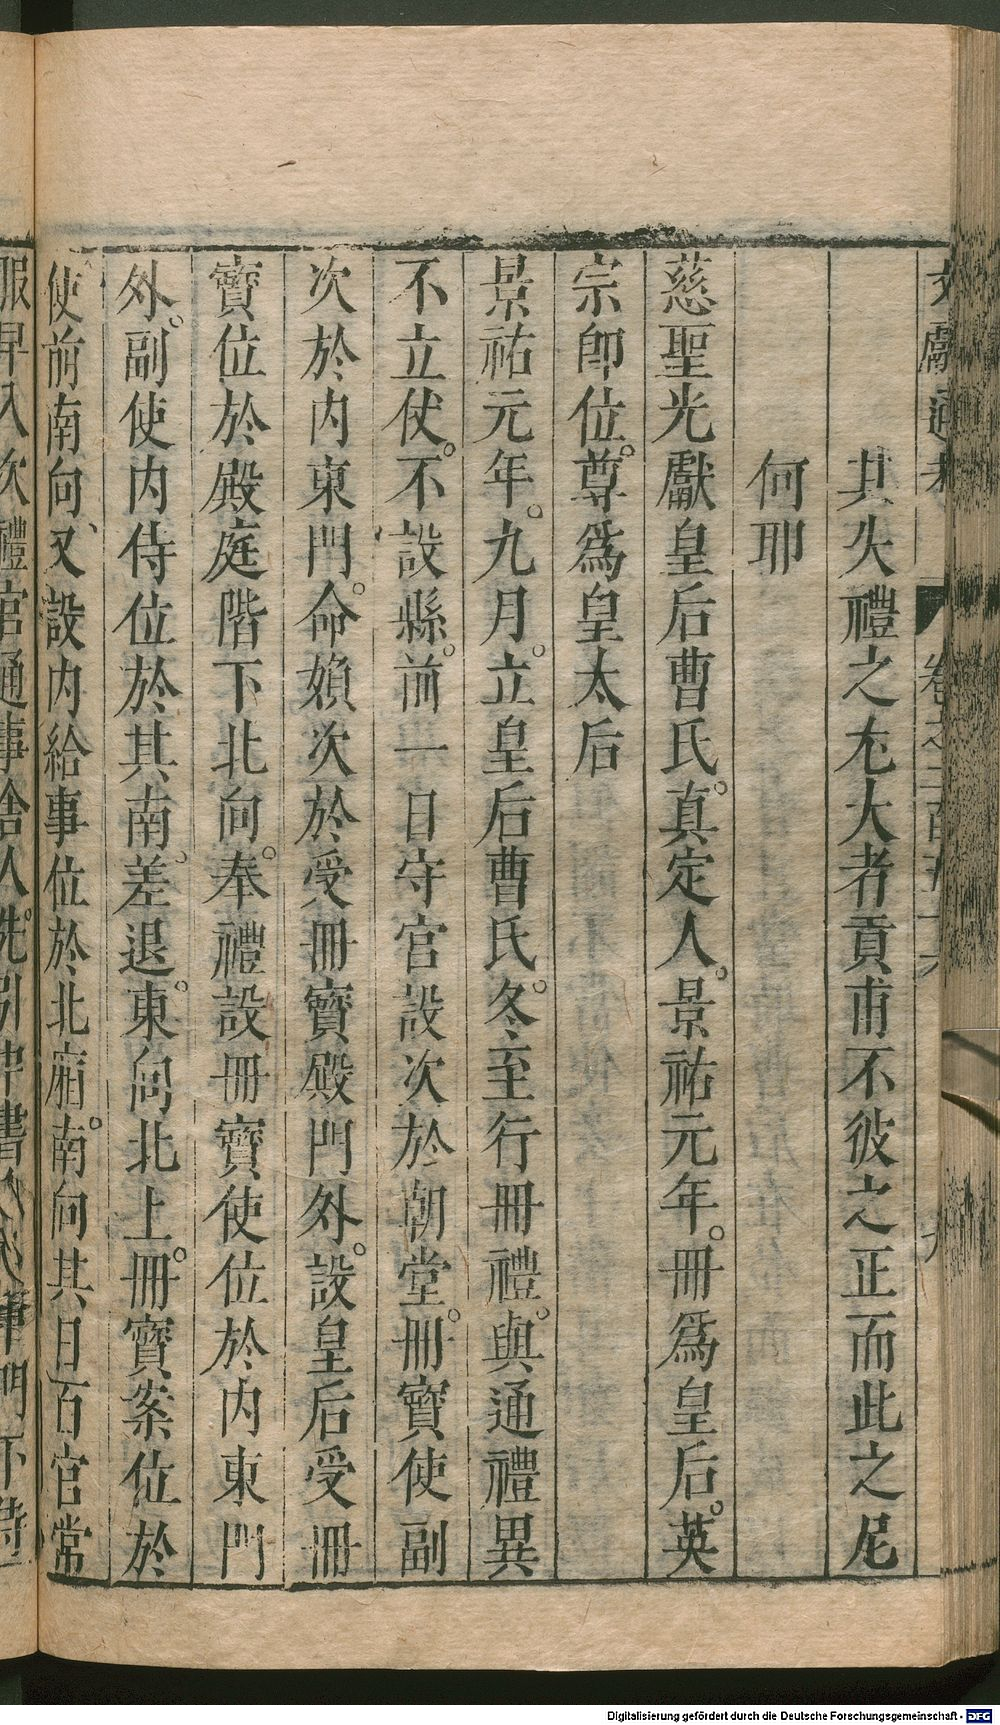 文獻通考 卷之二百五十六 九
其失禮之尤大者貢甫不彼之正而此之尼
何耶
慈聖光獻皇后曹氏。真定人。景祐元年。冊為皇后。英
宗即位。尊為皇太后
景祐元年。九月。立皇后曹氏。冬至行冊禮。與通禮異
不立仗。不設縣。前一日守宮設次於朝堂。冊寶使副
次於內東門。命婦次於受冊寶殿門外。設皇后受冊
寶位於殿庭階下北向。奉禮設冊寶使位於內東門
外。副使內侍位於其南、差退。東向北上。冊寶案位於
使前南向、又設內給事位於北廂。南向其日百官常
服早入次禮官通事舍人先引中書
門下侍
Digitalisierung gefördert durch die Deutsche Forschungsgemeinschaft - DFG